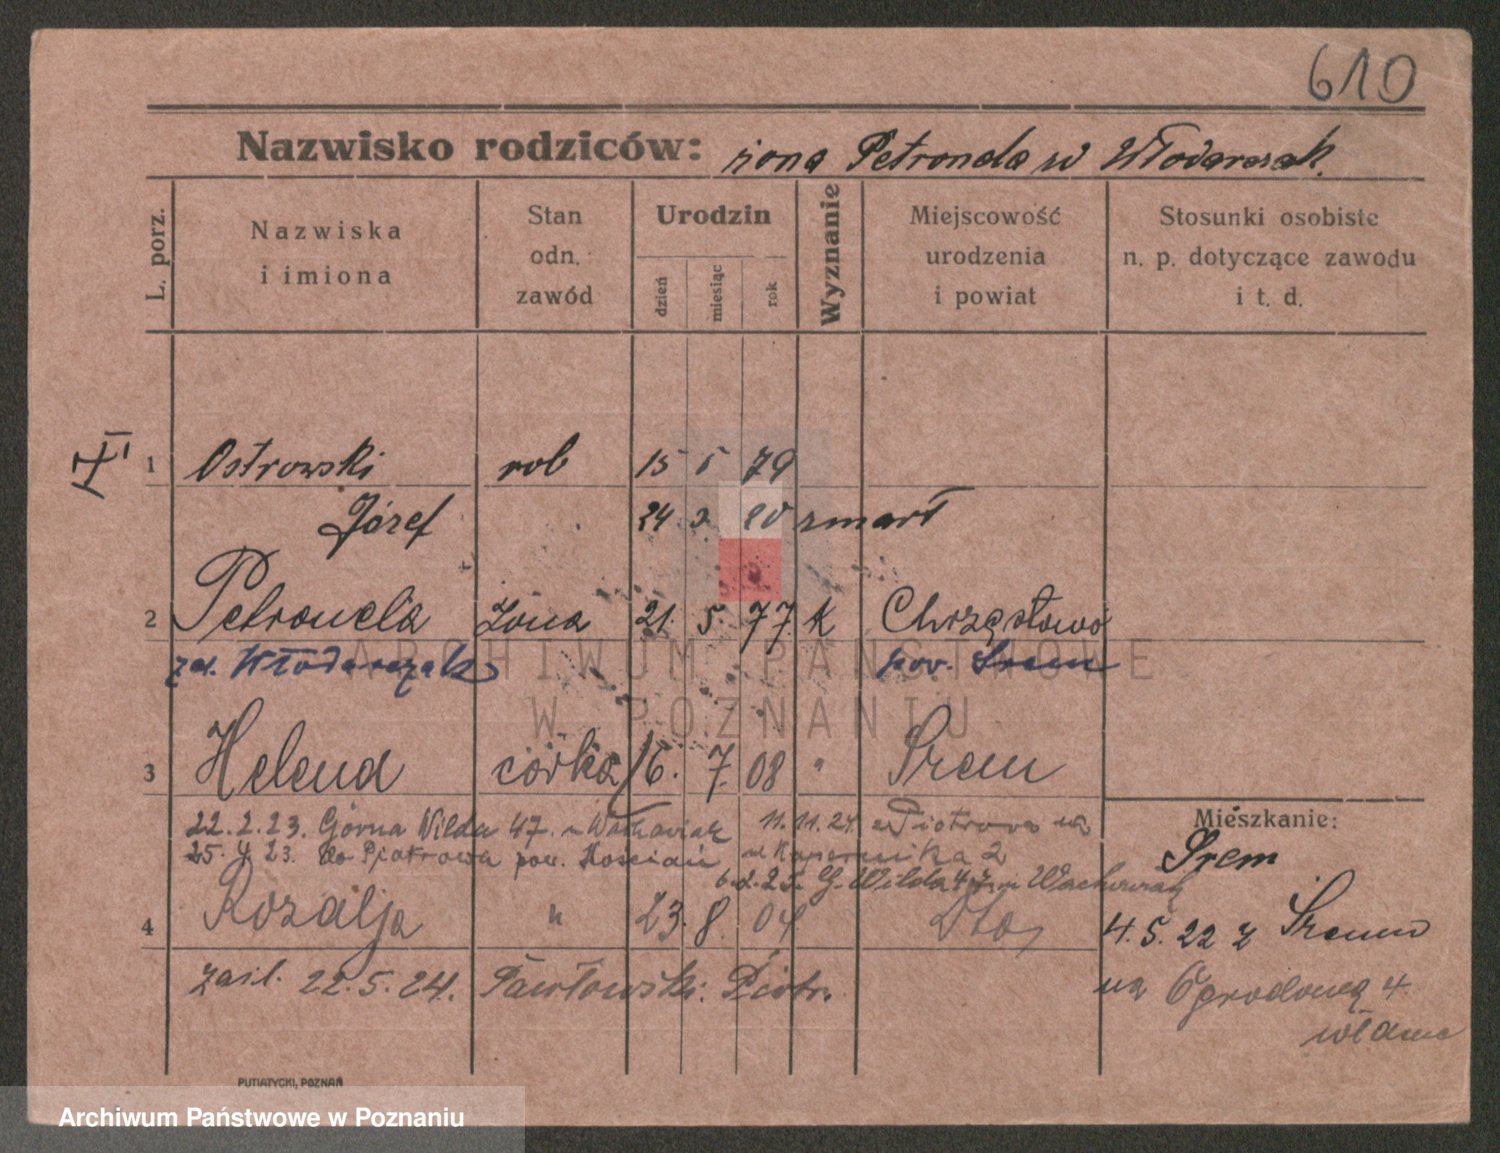 610
Nazwisko rodziców: żona Petronela w Włodarczak.
L. porz.
Nazwiska i imiona
Stan odn. zawód
Urodzin
dzień miesiąc rok
Wyznanie
Miejscowość urodzenia i powiat
Stosunki osobiste n. p. dotyczące zawodu i t. d.
1 Ostrowski rob 15 5 79
Józef 24 20 zmarł
2 Petronela żona 21. 5. 77. k Chrząstowo
zd. Włodarczak pow. Śrem
3 Helena córka 16. 7. 08 " Śrem
22.2.23. Górna Wilda 47. 11.11.24. z Piotrowa na
25. 23. do Piotrowa pow. Kościan Kopernika 2
6.2.25. G. Wilda 47 m Wachowiak
4 Rozalja " 23. 8. 04 Dto,
zaśl. 22.5.24. Pawłowski Piotr.
Mieszkanie:
Śrem
4.5.22 z Śremu
na Ogrodową 4
własne
PUTIATYCKI, POZNAŃ
ARCHIWUM PAŃSTWOWE
W POZNANIU
Archiwum Państwowe w Poznaniu